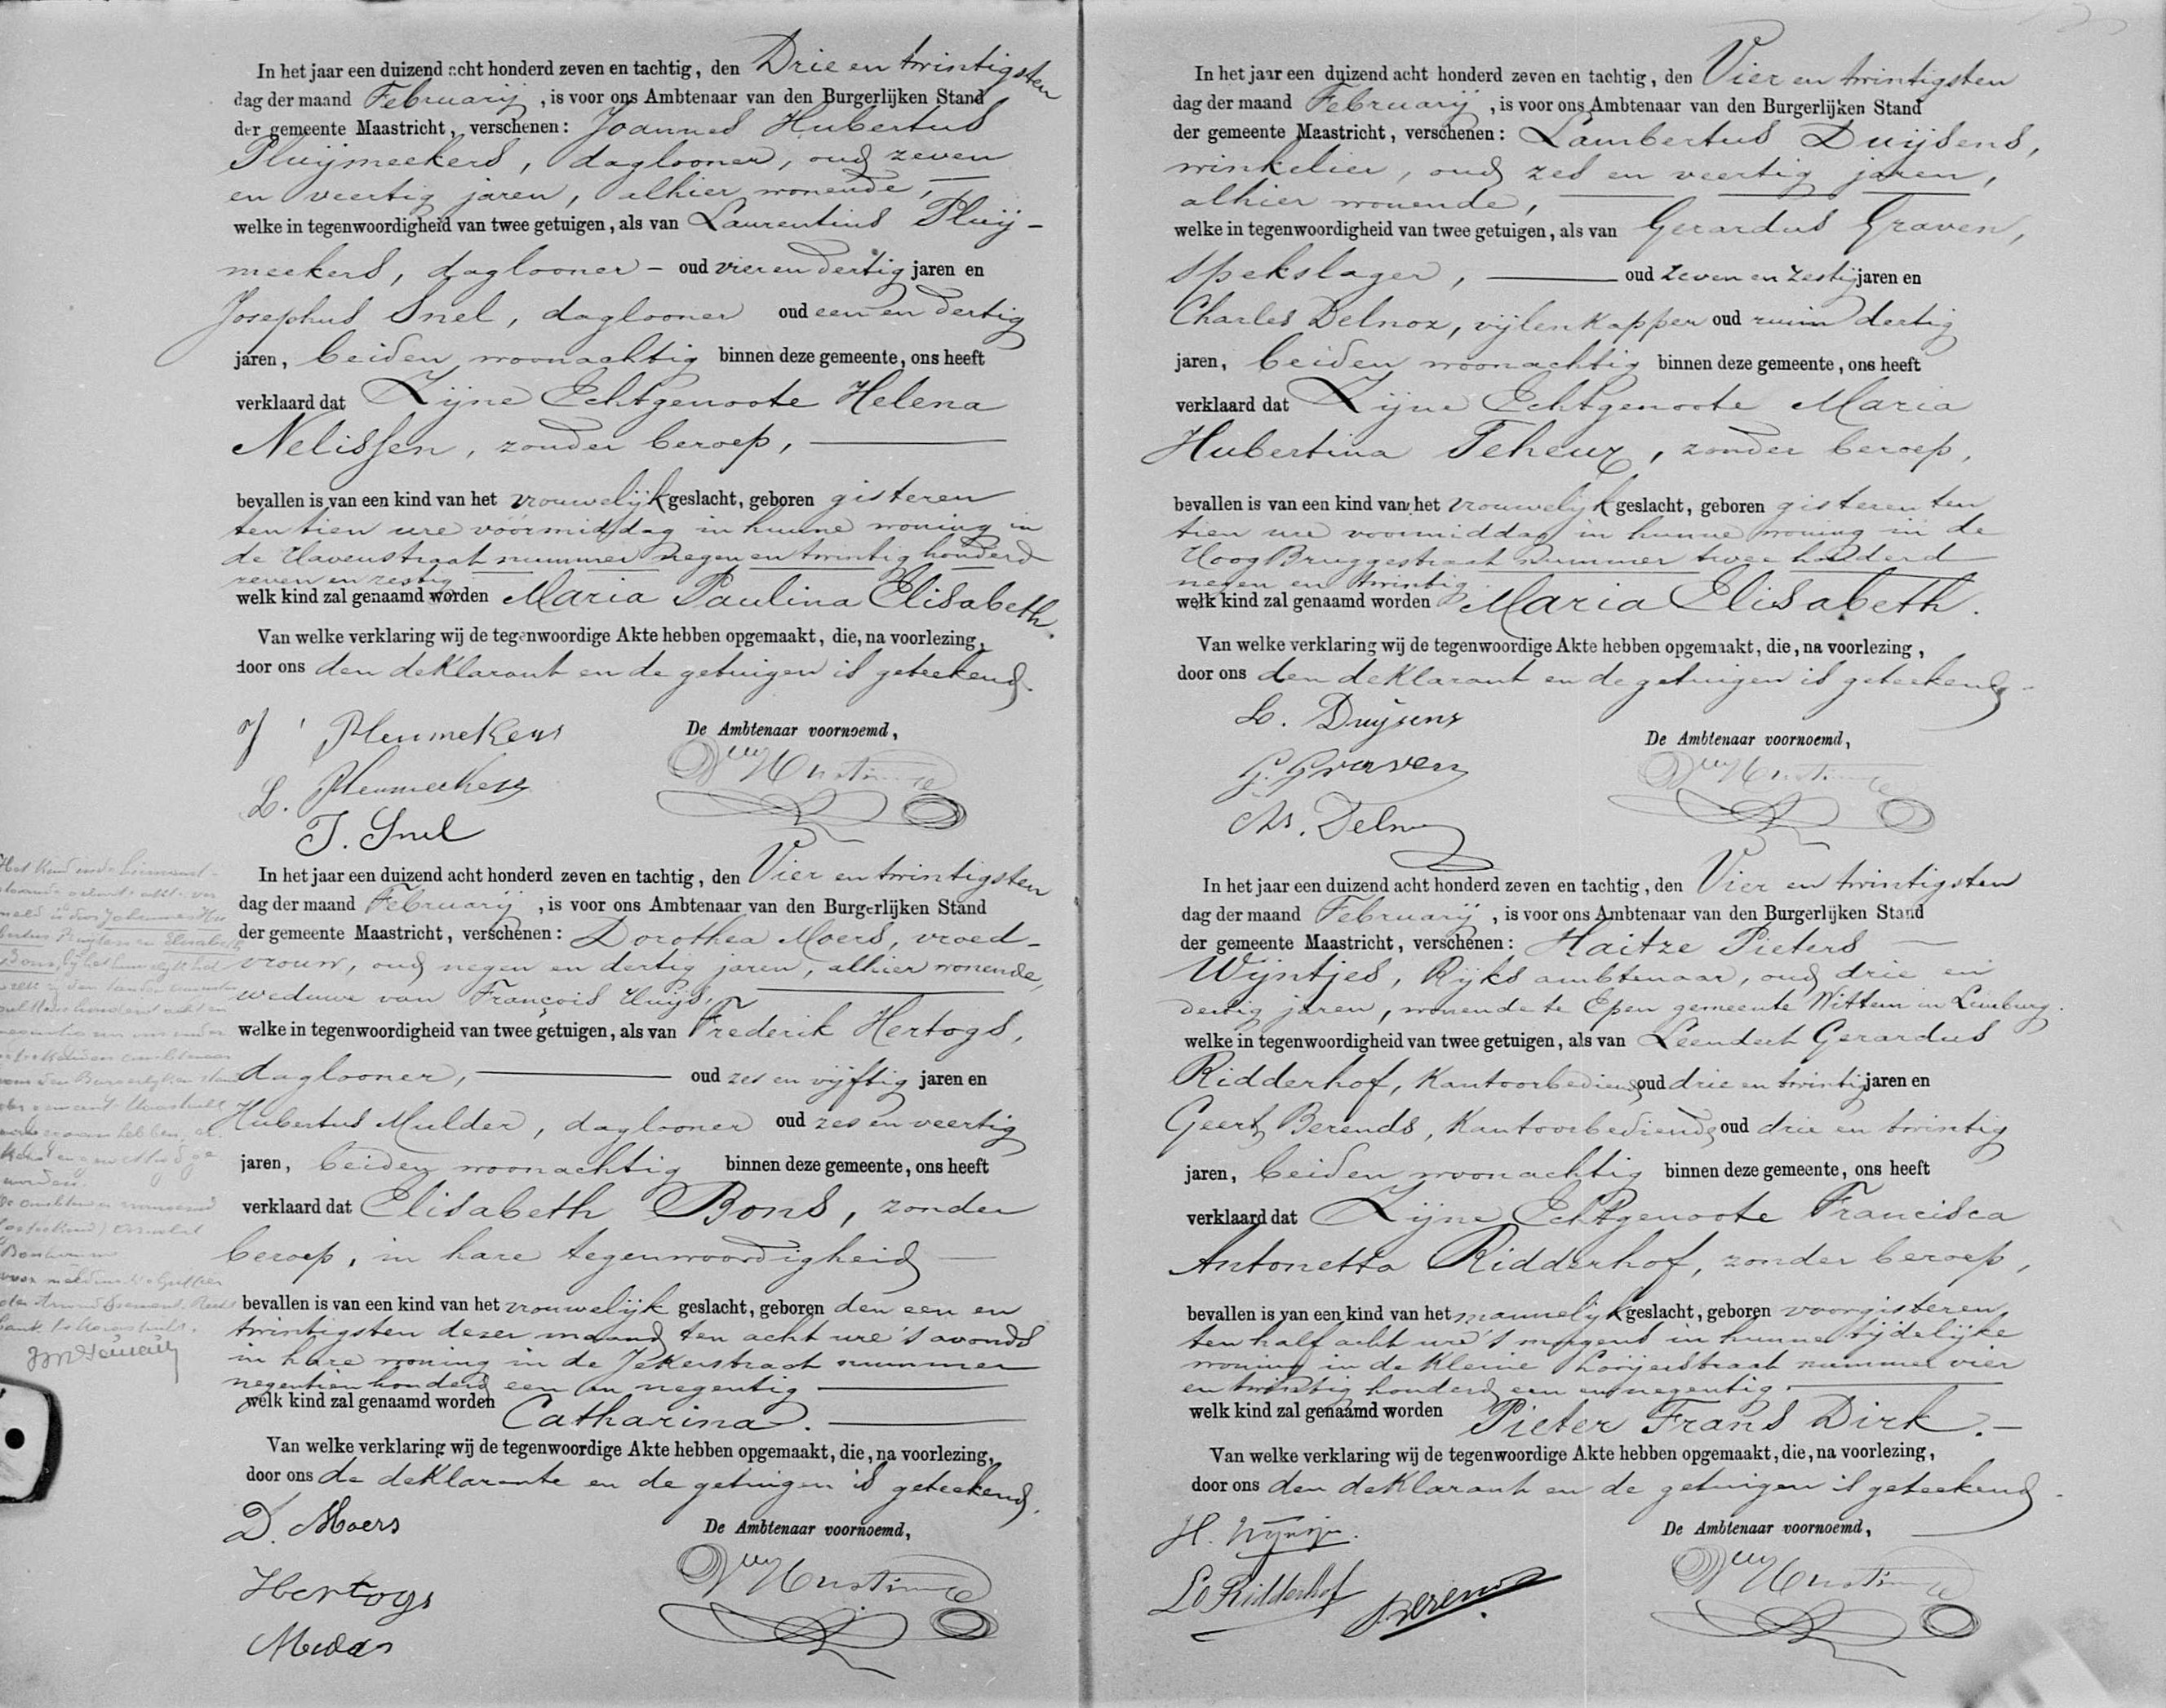 In het jaar een duizend acht honderd zeven en tachtig, den Drie en twintigsten
dag der maand Februarij, is voor ons Ambtenaar van den Burgerlijken Stand
der gemeente Maastricht, verschenen: Joannes Hubertus
Pluijmeekers, daglooner, oud zeven
en veertig jaren, alhier wonende,
welke in tegenwoordigheid van twee getuigen, als van Laurentius Pluij-
meekers, daglooner - oud vier en dertig jaren en
Josephus Snel, daglooner oud een en dertig
jaren, beiden woonachtig binnen deze gemeente, ons heeft
verklaard dat Zijne Echtgenoote Helena
Nelissen, zonder beroep,
bevallen is van een kind van het vrouwelijk geslacht, geboren gisteren
ten tien ure voormiddag in hunne woning in
de Havenstraat nummer negen en twintig honderd
zeven en zestig
welk kind zal genaamd worden Maria Paulina Elisabeth.
Van welke verklaring wij de tegenwoordige Akte hebben opgemaakt, die, na voorlezing,
door ons den deklarant en de getuigen is geteekend.
J Pleumekers
De Ambtenaar voornoemd,
L. Pleumeekers
J. Snel
In het jaar een duizend acht honderd zeven en tachtig, den Vier en twintigsten
dag der maand Februarij, is voor ons Ambtenaar van den Burgerlijken Stand
der gemeente Maastricht, verschenen: Dorothea Moers, vroed-
vrouw, oud negen en dertig jaren, alhier wonende,
weduwe van François Huijs,
welke in tegenwoordigheid van twee getuigen, als van Frederik Hertogs,
daglooner, oud zes en vijftig jaren en
Hubertus Mulder, daglooner oud zes en veertig
jaren, beiden woonachtig binnen deze gemeente, ons heeft
verklaard dat Elisabeth Bons, zonder
beroep, in hare tegenwoordigheid
bevallen is van een kind van het vrouwelijk geslacht, geboren den een en
twintigsten dezer maand ten acht ure 's avonds
in hare woning in de Jekerstraat nummer
negentien honderd een en negentig
welk kind zal genaamd worden Catharina.
Van welke verklaring wij de tegenwoordige Akte hebben opgemaakt, die, na voorlezing,
door ons de deklarante en de getuigen is geteekend.
D. Moers
De Ambtenaar voornoemd,
Hertogs
In het jaar een duizend acht honderd zeven en tachtig, den Vier en twintigsten
dag der maand Februarij, is voor ons Ambtenaar van den Burgerlijken Stand
der gemeente Maastricht, verschenen: Lambertus Duijsens,
winkelier, oud zes en veertig jaren,
alhier wonende,
welke in tegenwoordigheid van twee getuigen, als van Gerardus Graven,
Spekslager, oud zeven en zestig jaren en
Charles Delnoz, vijlenkapper oud ruim dertig
jaren, beiden woonachtig binnen deze gemeente, ons heeft
verklaard dat Zijne Echtgenoote Maria
Hubertina Teheux, zonder beroep,
bevallen is van een kind van het vrouwelijk geslacht, geboren gisteren ten
tien ure voormiddag in hunne woning in de
Hoog Bruggestraat nummer twee honderd
negen en twintig.
welk kind zal genaamd worden Maria Elisabeth.
Van welke verklaring wij de tegenwoordige Akte hebben opgemaakt, die, na voorlezing,
door ons den deklarant en de getuigen is geteekend.
L. Duijsens
De Ambtenaar voornoemd,
G. Graven
In het jaar een duizend acht honderd zeven en tachtig, den Vier en twintigsten
dag der maand Februarij, is voor ons Ambtenaar van den Burgerlijken Stand
der gemeente Maastricht, verschenen: Haitze Pieters
Wijntjes, Rijks ambtenaar, oud drie en
dertig jaren, wonende te Epen gemeente Wittem in Limburg.
welke in tegenwoordigheid van twee getuigen, als van Leendert Gerardus
Ridderhof, Kantoorbediende oud drie en twintig jaren en
Geert Berends, Kantoorbediende oud drie en twintig
jaren, beiden woonachtig binnen deze gemeente, ons heeft
verklaard dat Zijne Echtgenoote Francisca
Antonetta Ridderhof, zonder beroep,
bevallen is van een kind van het mannelijk geslacht, geboren voorgisteren,
ten half acht ure 's morgens in hunne tijdelijke
woning in de Kleine Looijerstraat nummer vier
en twintig honderd een en negentig.
welk kind zal genaamd worden Pieter Frans Dirk.
Van welke verklaring wij de tegenwoordige Akte hebben opgemaakt, die, na voorlezing,
door ons den deklarant en de getuigen is geteekend
De Ambtenaar voornoemd,
LG Ridderhof